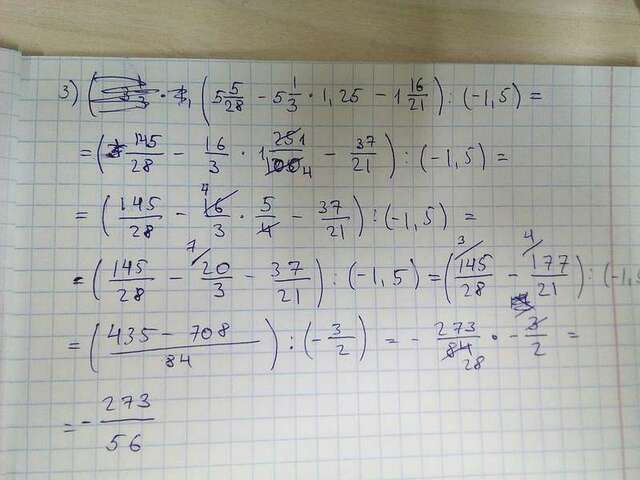 3) (5 5/28 − 5 1/3 · 1,25 − 1 16/21) : (−1,5) =
= (145/28 − 16/3 · 1 25 1/100 4 − 37/21) : (−1,5) =
= (145/28 − 16 4/3 · 5/4 − 37/21) : (−1,5) =
= (145/28 − 20 7/3 − 37/21) : (−1,5) = (145 3/28 − 177 4/21) : (−1,5
= (435 − 708/84) : (−3/2) = − 273/84 28 · − 3/2 =
= − 273/56